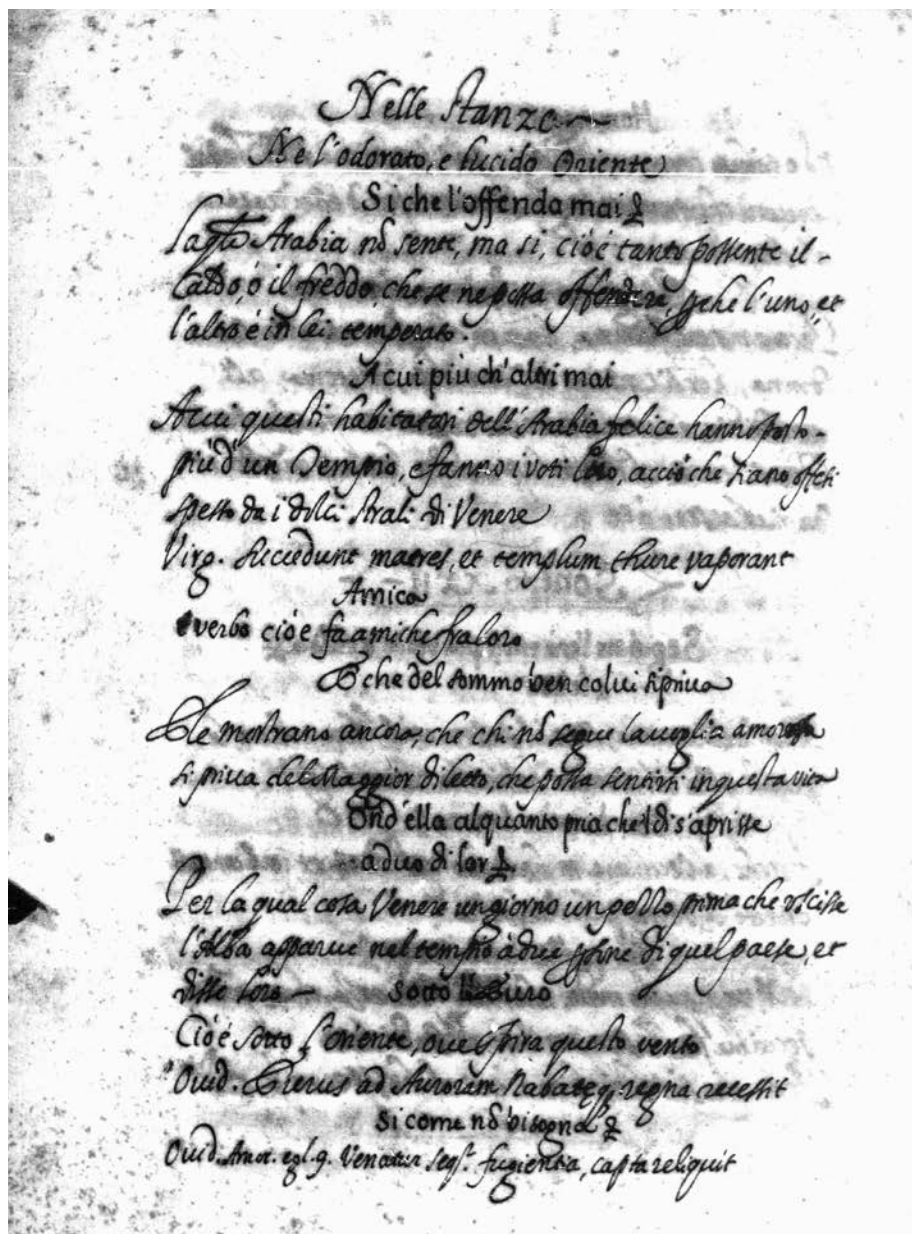 Nelle Stanze
Ne l'odorato, e lucido Oriente
Si che l'offenda mai
Arabia nō sente, ma si, cioè tanto possente il-
Caldo, o il freddo, che se ne possa offendere, che l'uno, et
l'altro è in lei temperato.
A cui più ch'altri mai
A cui questi habitatori dell'Arabia felice hanno posto-
più d'un Tempio, e fanno i voti loro, acciò che siano offesi
spesso da i dolci strali di Venere
Virg. Succedunt matres, et templum thure vaporant
Amica
è verbo cioè fa amiche fra loro
E che del sommo ben colui si priva
E le mostrano ancora, che chi nō segue la voglia amorosa
si priva del Maggior diletto, che possa sentirsi in questa vita
Ond'ella alquanto pria che'l dì s'aprisse
a due di lor
Per la qual cosa Venere un giorno un pezzo prima che uscisse
l'Alba apparue nel tempio à due di quel paese, et
disse loro — sotto l'Euro
Cioè sotto l'oriente, oue spira questo vento
Ovid. Eurus ad Auroram Nabateaq. regna recessit
Si come nō bisogna
Ovid. Amor. 9. Venator fugientia, capta reliquit